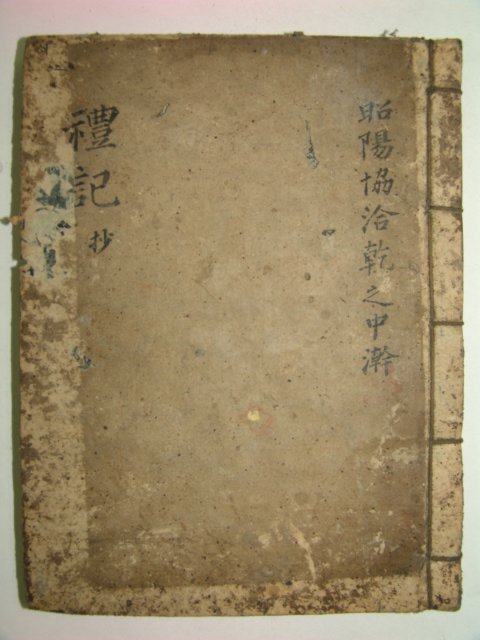 昭陽協洽乾之中澣
禮記抄